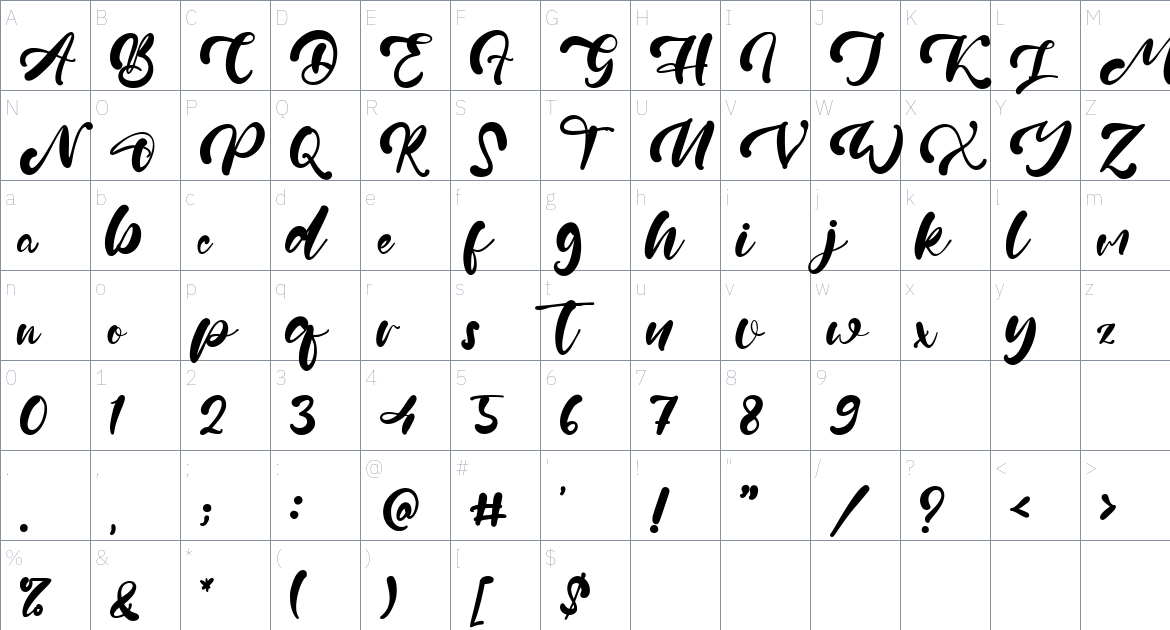 A B C D E F G H I J K L M
A B C D E F G H I J K L M
N O P Q R S T U V W X Y Z
N O P Q R S T U V W X Y Z
a b c d e f g h i j k l m
a b c d e f g h i j k l m
n o p q r s t u v w x y z
n o p q r s t u v w x y z
0 1 2 3 4 5 6 7 8 9
0 1 2 3 4 5 6 7 8 9
. , ; : @ # ' ! " / ? < >
. , ; : @ # ' ! " / ? < >
% & * ( ) [ $
% & * ( ) [ $